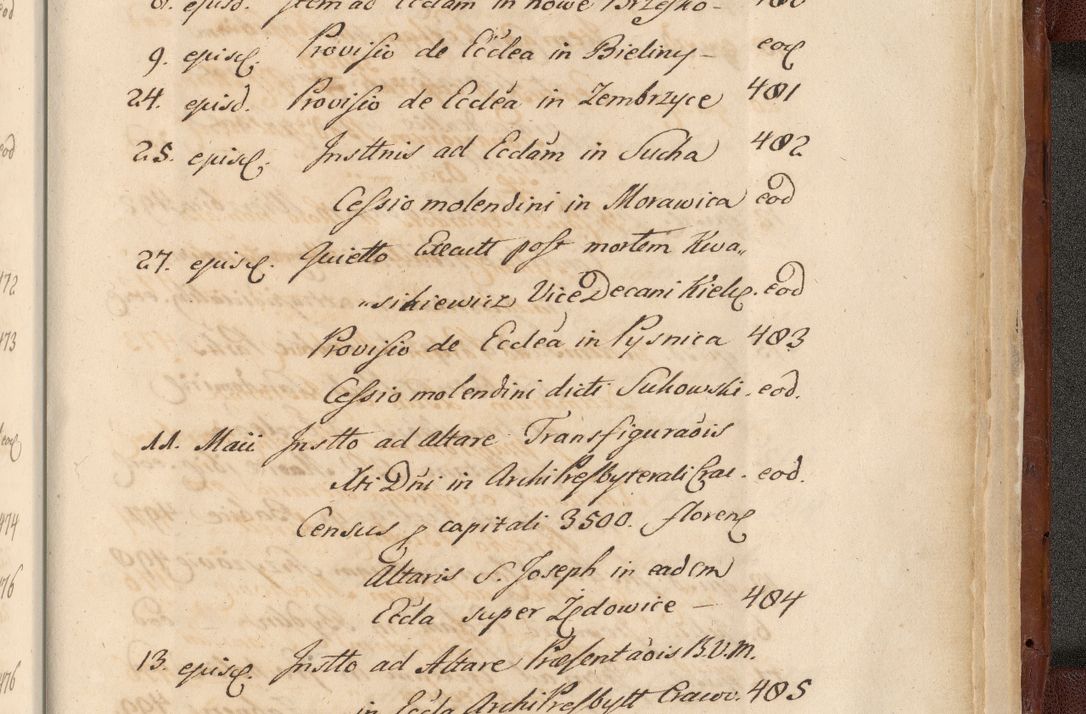 6. ejusd. Item ad Ecclam in nowe Brzesko - 480
9. ejusd. Provisio de Ecclea in Bieliny - eod
24. ejusd. Provisio de Ecclea in Zembrzyce 481
25. ejusd. Insttnis ad Ecclam in Sucha 482
Cessio molendini in Morawica eod
27. ejusd. Quietto Execult post mortem Kwa„
„sikiewicz Vice Decani Kielc. eod
Provisio de Ecclea in Pysnica 483
Cessio molendini dicti Sukowski. eod.
11. Maii Instto ad Altare Transfiguraōis
Xti Dñi in ArchiPresbyterali Crac. eod.
Census p capitali 3500. floren
Altaris S. Joseph in eadem
Eccla super Zędowice - 484
13. ejusd. Instto ad Altare Præsentaōis B.V.M.
in Eccla ArchiPresbytt Cracov. 485
472
473
474
476
476